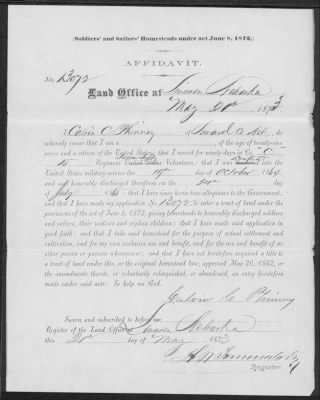 (Soldiers' and Sailors' Homesteads under act June 8, 1872.)
AFFIDAVIT.
No. 13072
Land Office at Lincoln Nebraska
May 20th 1873
I Calvin C. Phinney of Seward Co Neb do
solemnly swear that I am a of the age of twenty-one
years and a citizen of the United States; that I served for ninety days in Co. "C"
15th Regiment Iowa Inft Volunteers; that I was Drafted into the
United States military service the 19th day of October 1864
and was honorably discharged therefrom on the day of
July 1865 that I have since borne true allegiance to the Government;
and that I have made my application No. 13072 to enter a tract of land under the
provisions of the act of June 8, 1872, giving homesteads to honorably discharged soldiers
and sailors, their widows and orphan children; that I have made said application in
good faith; and that I take said homestead for the purpose of actual settlement and
cultivation, and for my own exclusive use and benefit, and for the use and benefit of no
other person or persons whomsoever; and that I have not heretofore acquired a title to
a tract of land under this, or the original homestead law, approved May 20, 1862, or
the amendments thereto, or voluntarily relinquished, or abandoned, an entry heretofore
made under said acts: So help me God.
Calvin C Phinney
Sworn and subscribed to before me,
Register of the Land Office at Lincoln Nebraska
this 20th day of May 1873
Register.